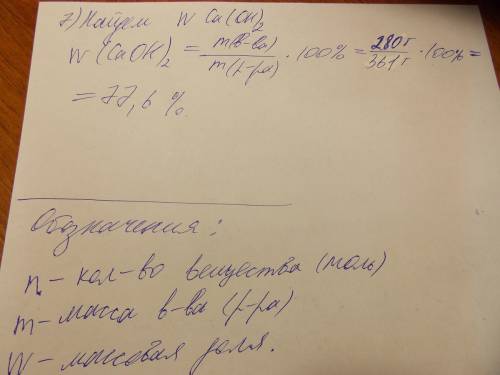 7) Найдем W Ca(OH)₂
W (CaOH)₂ = m(в-ва)/m(р-ра) · 100% = 280г/361г · 100% =
= 77,6 %
Обозначения:
n - кол-во вещества (моль)
m - масса в-ва (р-ра)
W - массовая доля.